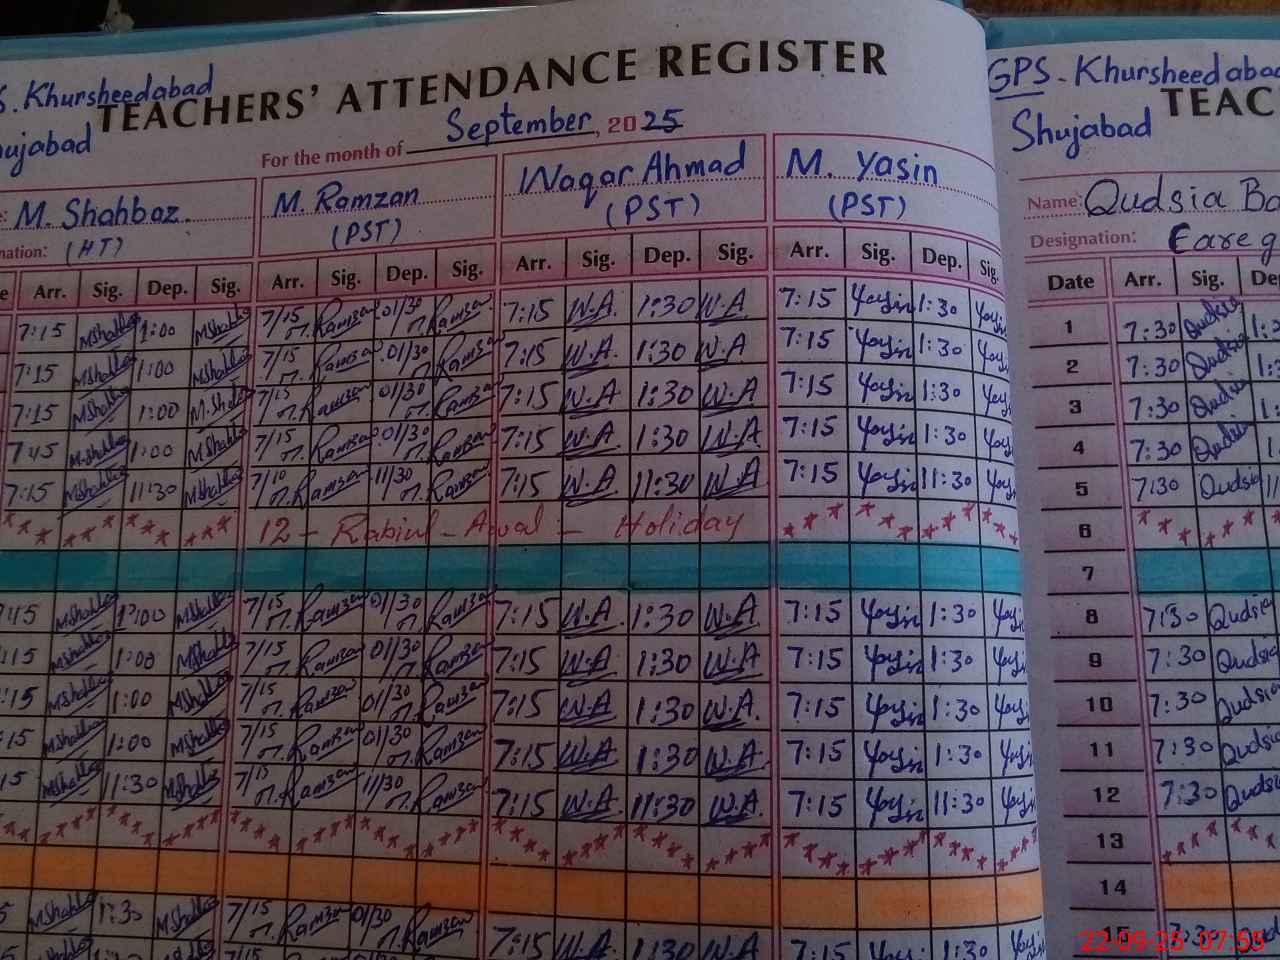 S. Khursheedabad
TEACHERS' ATTENDANCE REGISTER
ujabad
For the month of September, 2025
M. Shahbaz.
M. Ramzan
Waqar Ahmad
M. Yasin
nation: (HT)
(PST)
(PST)
(PST)
Arr. Sig. Dep. Sig. Arr. Sig. Dep. Sig. Arr. Sig. Dep. Sig. Arr. Sig. Dep. Sig.
7:15 MShahbaz 1:00 MShahbaz 7/15 M.Ramzan 01/30 M.Ramzan 7:15 W.A. 1:30 W.A 7:15 Yasin 1:30
7:15 MShahbaz 1:00 MShahbaz 7/15 M.Ramzan 01/30 M.Ramzan 7:15 W.A. 1:30 W.A 7:15 Yasin 1:30
7:15 MShahbaz 1:00 M.Shahbaz 7/15 M.Ramzan 01/30 M.Ramzan 7:15 W.A 1:30 W.A 7:15 Yasin 1:30
7:45 MShahbaz 1:00 MShahbaz 7/15 M.Ramzan 01/30 M.Ramzan 7:15 W.A 1:30 W.A 7:15 Yasin 1:30
7:15 MShahbaz 11:30 MShahbaz 7/10 M.Ramzan 11/30 M.Ramzan 7:15 W.A 11:30 W.A 7:15 Yasin 11:30
12 - Rabiul - Awal - Holiday
7:45 MShahbaz MShahbaz 7/15 M.Ramzan 01/30 M.Ramzan 7:15 W.A. 1:30 W.A 7:15 Yasin 1:30
:15 MShahbaz 1:00 MShahbaz 7/15 M.Ramzan 01/30 M.Ramzan 7:15 W.A 1:30 W.A 7:15 Yasin 1:30
:15 MShahbaz 1:00 MShahbaz 7/15 M.Ramzan 01/30 M.Ramzan 7:15 W.A 1:30 W.A. 7:15 Yasin 1:30
:15 MShahbaz 1:00 MShahbaz 7/15 M.Ramzan 01/30 M.Ramzan 7:15 W.A 1:30 W.A 7:15 Yasin 1:30
15 MShahbaz 11:30 MShahbaz 7/15 M.Ramzan 11/30 M.Ramzan 7:15 W.A 11:30 W.A. 7:15 Yasin 11:30
5 MShahbaz 1:30 MShahbaz 7/15 M.Ramzan 01/30 M.Ramzan 7:15 W.A. 1:30 W.A 7:15 1:30
GPS - Khursheedabad
TEAC
Shujabad
Name: Qudsia
Designation:
Date Arr. Sig.
1 7:30 Qudsia
2 7:30 Qudsia
3 7:30 Qudsia
4 7:30 Qudsia
5 7:30 Qudsia
6
7
8 7:30 Qudsia
9 7:30 Qudsia
10 7:30 Qudsia
11 7:30 Qudsia
12 7:30 Qudsia
13
14
22-09-25 07:55